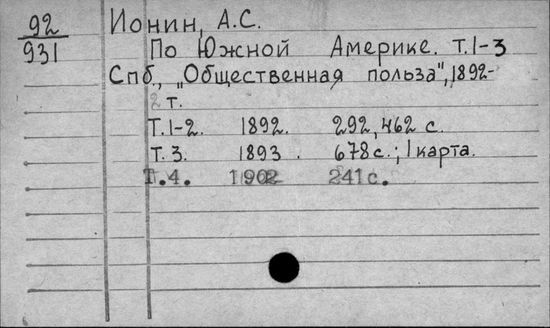 92
931
Ионин, А.С.
По Южной Америке. Т.1-3
Спб., "Общественная польза", 1892-
2 т.
Т.1-2. 1892. 292, 462 с.
Т. 3. 1893. 678 с.; 1 карта.
Т.4. 1902 241 с.